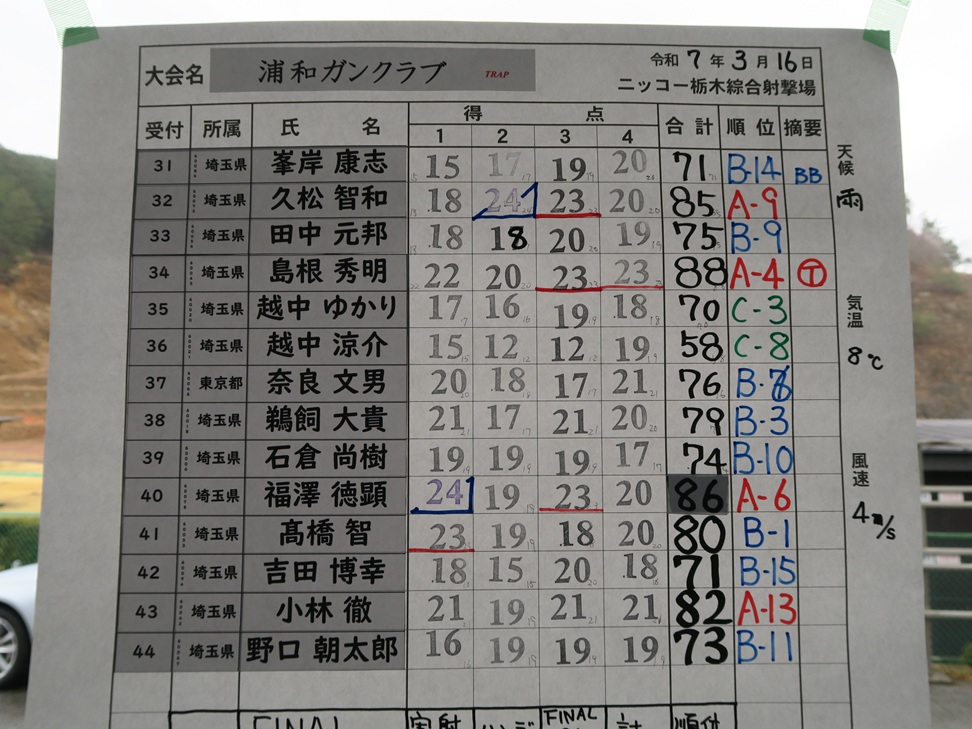 大会名 浦和ガンクラブ TRAP
令和 7 年 3 月 16 日
ニッコー栃木綜合射撃場
受付 所属 氏 名 得 点 合計 順位 摘要
1 2 3 4
31 埼玉県 峯岸 康志 15 17 19 20 71 B-14 BB
32 埼玉県 久松 智和 18 24 23 20 85 A-9
33 埼玉県 田中 元邦 18 18 20 19 75 B-9
34 埼玉県 島根 秀明 22 20 23 23 88 A-4 Ⓣ
35 埼玉県 越中 ゆかり 17 16 19 18 70 C-3
36 埼玉県 越中 涼介 15 12 12 19 58 C-8
37 東京都 奈良 文男 20 18 17 21 76
38 埼玉県 鵜飼 大貴 21 17 21 20 79 B-3
39 埼玉県 石倉 尚樹 19 19 19 17 74 B-10
40 埼玉県 福澤 徳顕 24 19 23 20 86 A-6
41 埼玉県 髙橋 智 23 19 18 20 80 B-1
42 埼玉県 吉田 博幸 18 15 20 18 71 B-15
43 埼玉県 小林 徹 21 19 21 21 82 A-13
44 埼玉県 野口 朝太郎 16 19 19 19 73 B-11
天候
雨
気温
8℃
風速
4m/s
FINAL FINAL